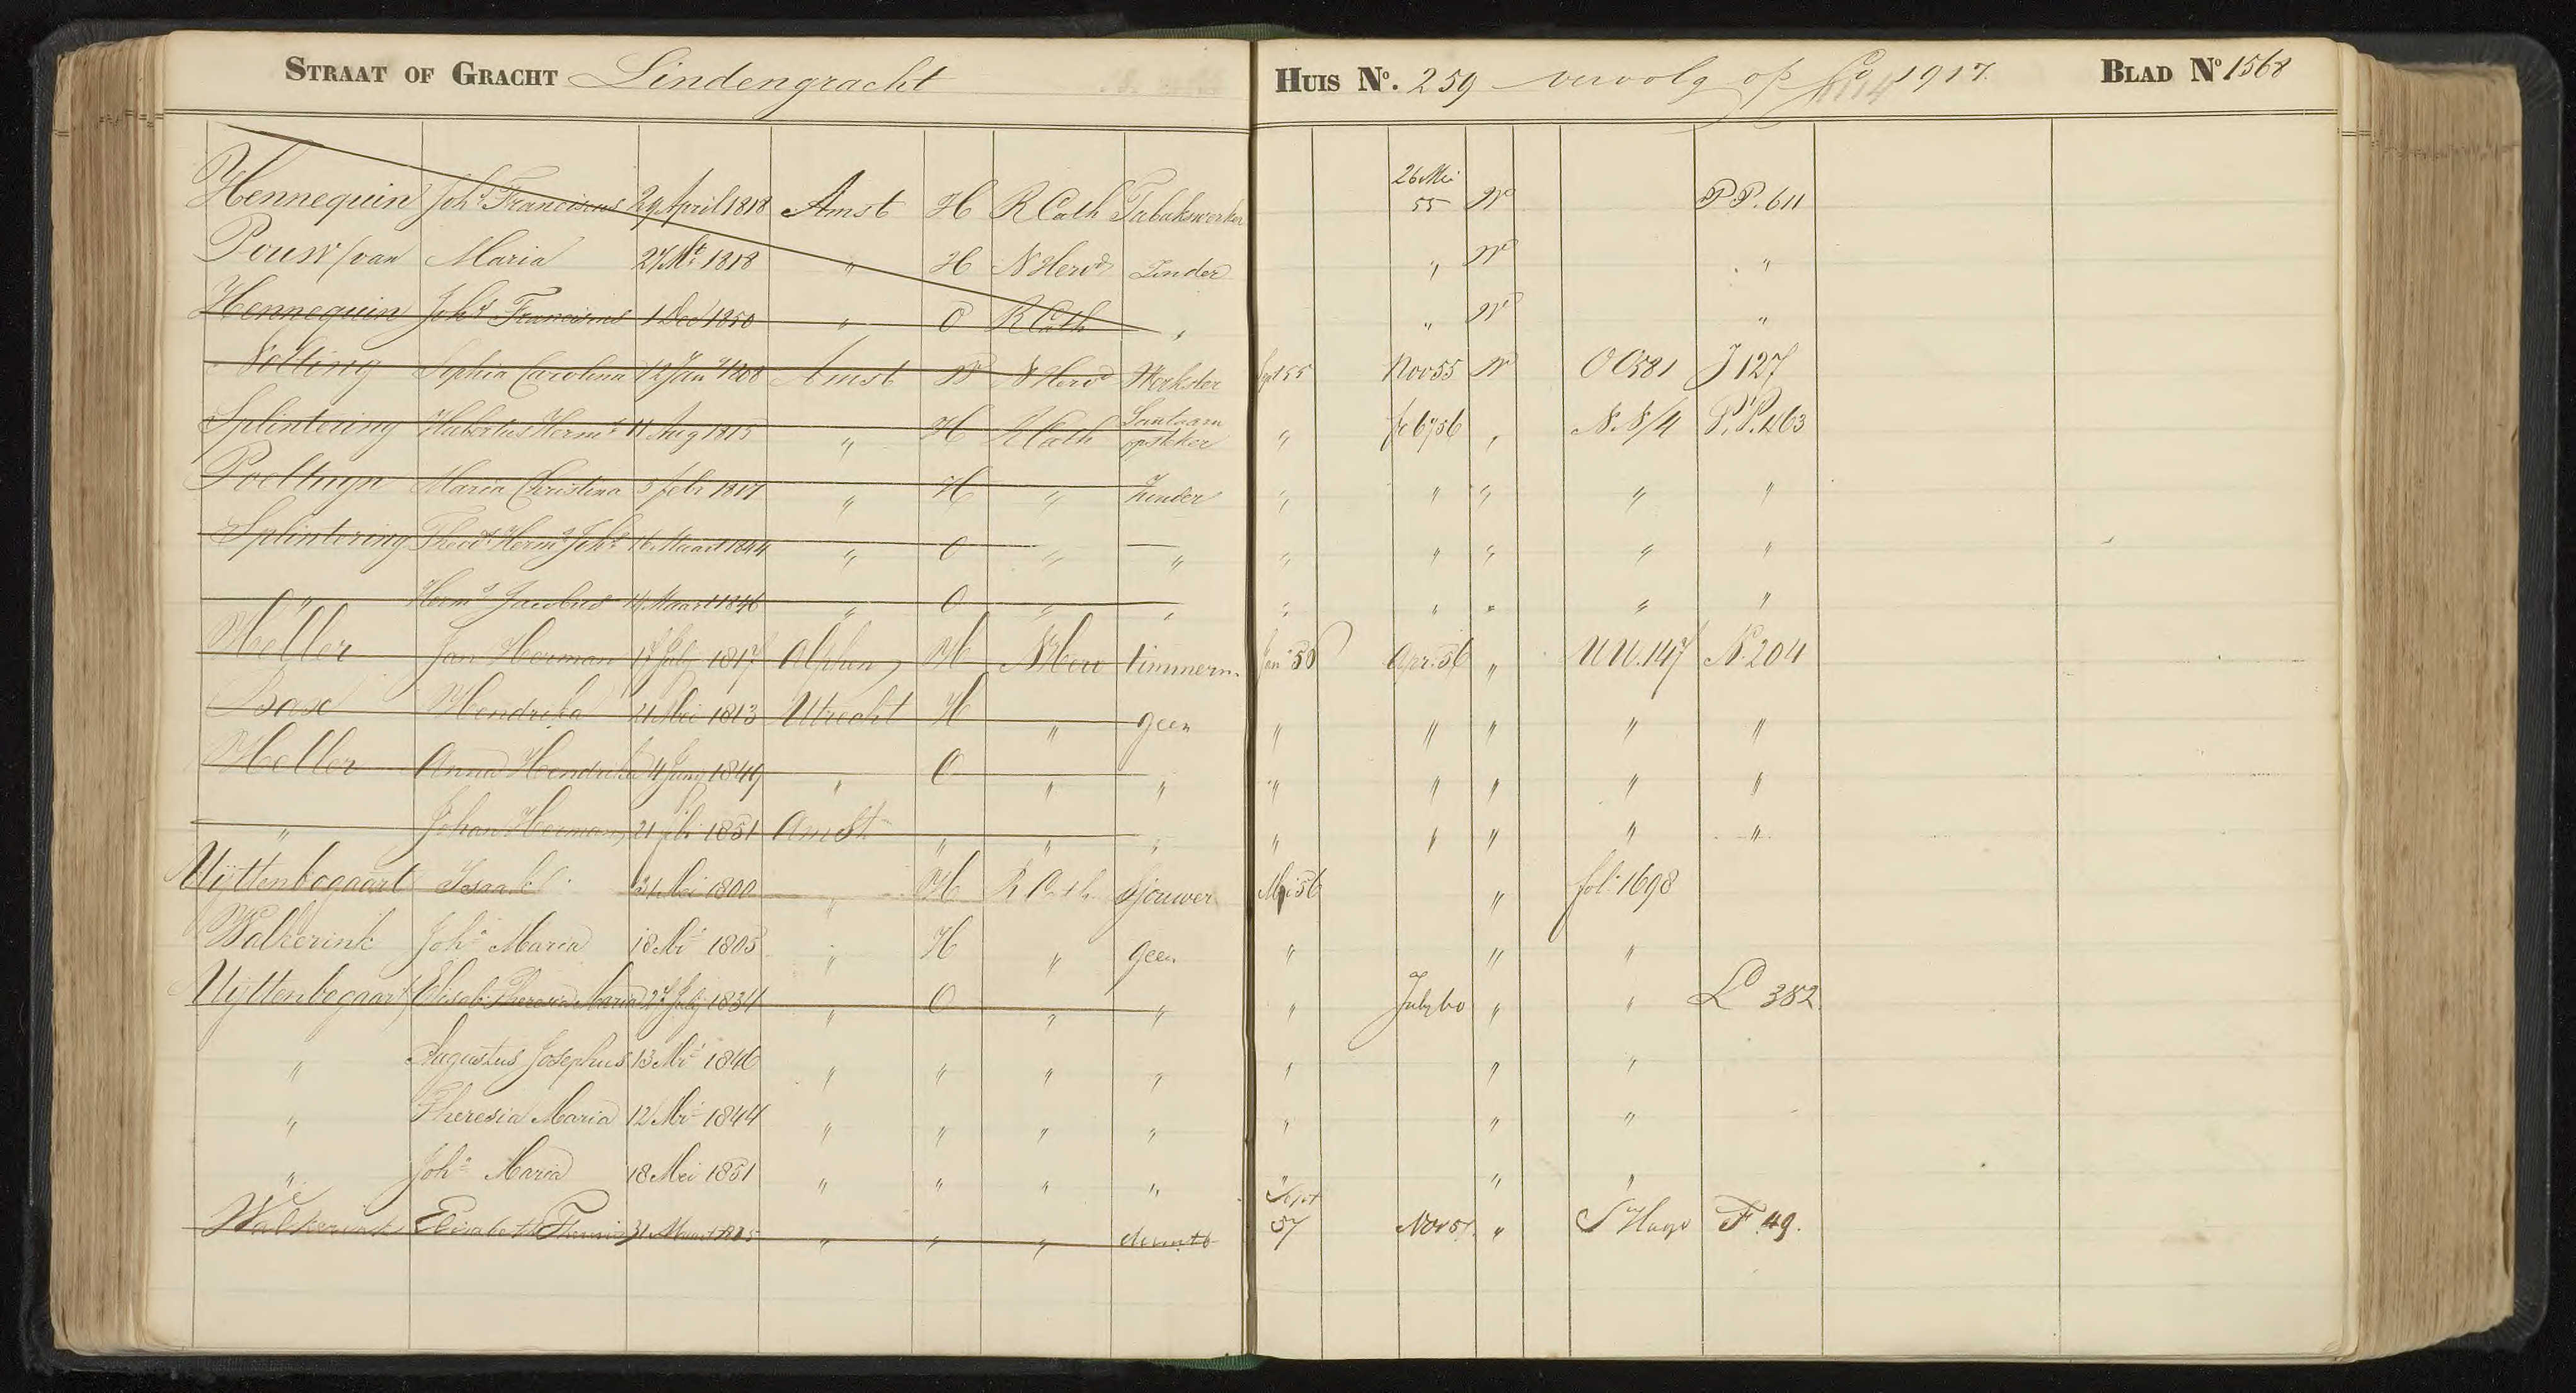 STRAAT OF GRACHT Lindengracht HUIS No. 259 vervolg op fo 1917. BLAD No 1568
Hennequin Johs Franciscus 29 April 1818 Amst H R Cath Tabakswerker 26 Mei 55 W PP. 611
Pouw / van Maria 27 1818 " H N Hervd Zonder " W "
Hennequin Johs Franciscus 1 Dec 1850 " O R Cath " " W "
Nolting Sophia Carolina 12 Jan 1808 Amst W N Hervd Werkster Sept 55 Nov 55 W OO581 J 127
Splintering Hubertus Herms 11 Aug 1815 " H R Cath Lantaarn opsteker " 56 " NN/4 P.P. 463
Poelhuyn Maria Christina 5 Febr 1817 " H " Zonder " " " " "
Splintering Theods Herms Johs 16 Maart 1844 " O " " " " " " "
" Herms Jacobus 14 Maart 1846 " O " " " " " " "
Heller Jan Herman 17 July 1817 Alphen H N Herv timmerm. Jan 56 Apr. 56 " UU. 147 N. 204
Hendrika 21 Mei 1813 Utrecht H " geen " " " " "
Heller Anna Hendrika 4 Juny 1849 " O " " " " " " "
" Johan Herman 21 febr 1851 Amst " " " " " " " "
Uijttenbogaart Isaak 31 Mei 1800 " H R Cath. sjouwer Mei 56 " fol: 1698
Walkerink Joha Maria 18 1805 " H " geen " " "
Uijttenbogaart Elisab: Theresia Maria 27 July 1834 " O " " " July 60 " " L 382.
" Augustus Josephus 13 1846 " " " " " " "
" Theresia Maria 12 1844 " " " " " " "
" Joha Maria 18 Mei 1851 " " " " " " "
Walkerink Elisabeth 31 Maart " " " Sept 57 Nov 57. " S Hage F 49.